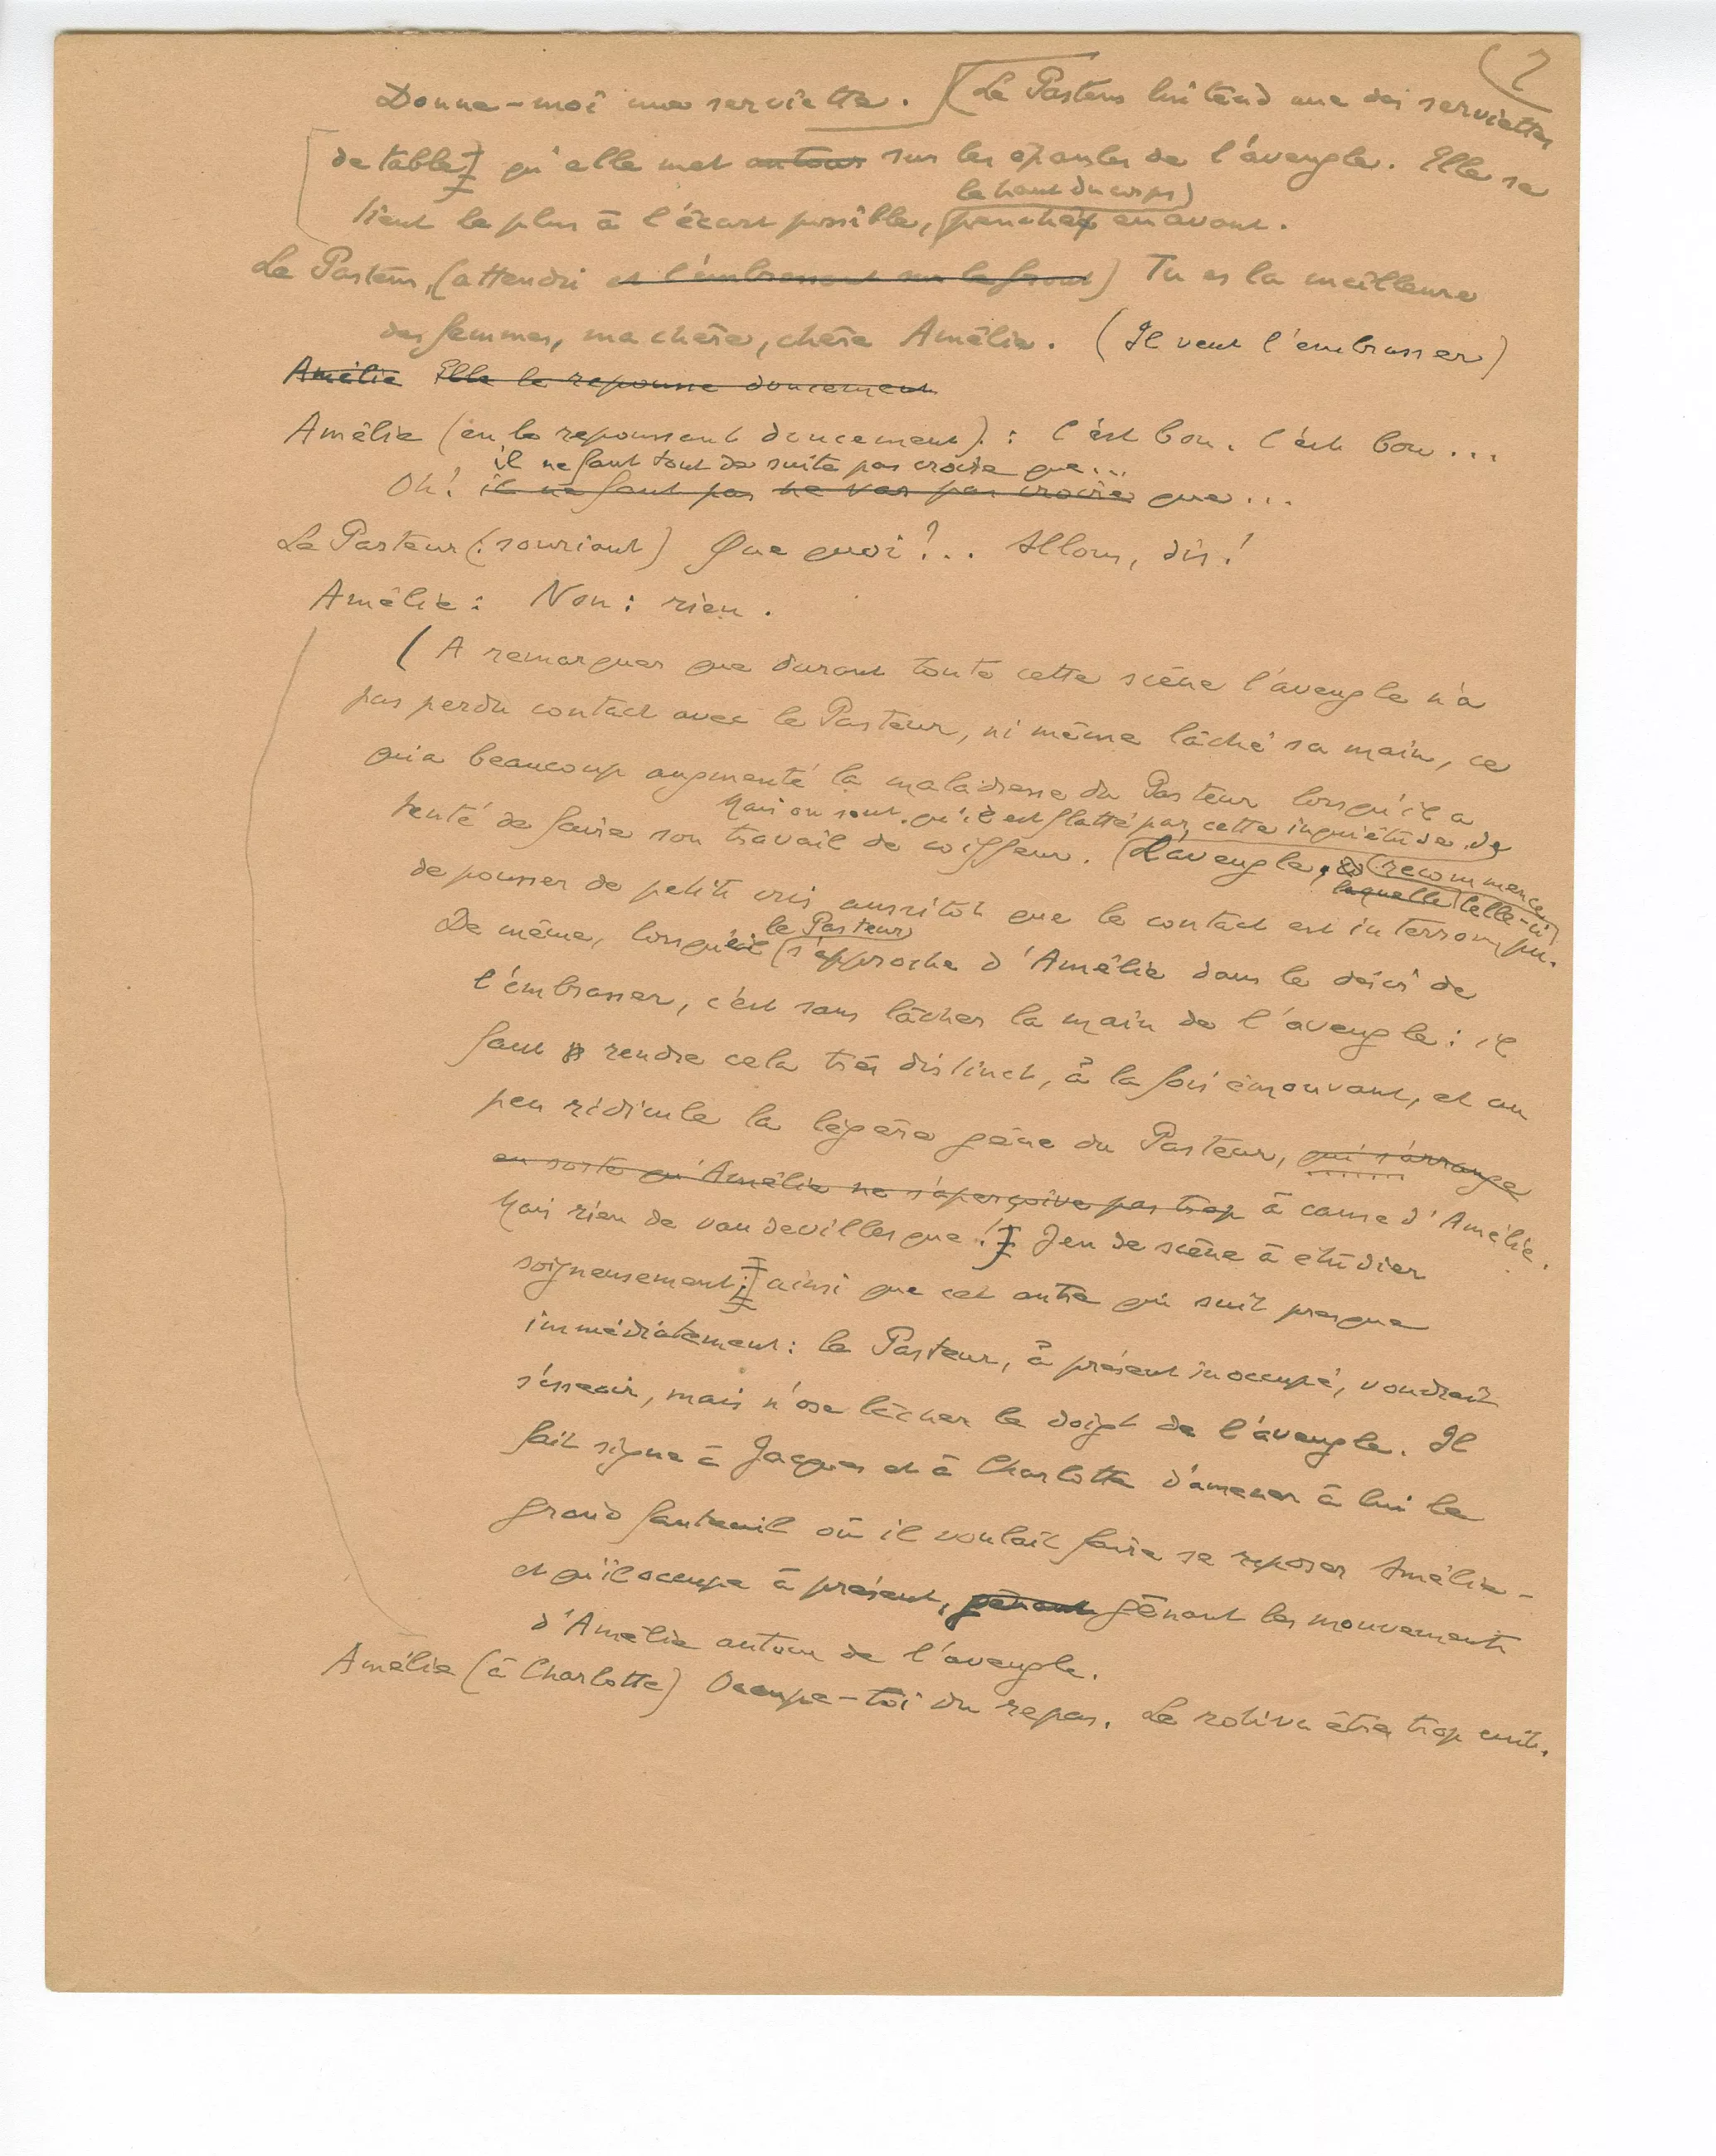 2
Donne-moi une serviette. (Le Pasteur lui tend une des serviettes
de table] qu'elle met autour sur les épaules de l'aveugle. Elle se
le haut du corps
tient le plus à l'écart possible, penchée en avant.
Le Pasteur, (attendri et l'embrassant sur le front) Tu es la meilleure
des femmes, ma chère, chère Amélie. (Il veut l'embrasser)
Amélie Elle le repousse doucement
Amélie (en le repoussant doucement) : C'est bon. C'est bon...
il ne faut tout de suite pas croire que...
Oh! il ne faut pas ne vas pas croire que...
Le Pasteur (souriant) Que quoi?.. Allons, dis!
Amélie : Non : rien.
(A remarquer que durant toute cette scène l'aveugle n'a
pas perdu contact avec le Pasteur, ni même lâché sa main, ce
qui a beaucoup augmenté la maladresse du Pasteur lorsqu'il a
Mais on sent qu'il est flatté par cette inquiétude de
tenté de faire son travail de coiffeur. (L'aveugle, recommence
laquelle celle-ci
de pousser de petits cris aussitôt que le contact est interrompu.
le Pasteur
De même, lorsqu'il s'approche d'Amélie dans le désir de
l'embrasser, c'est sans lâcher la main de l'aveugle : il
faut rendre cela très distinct, à la fois émouvant, et un
peu ridicule la légère gêne du Pasteur, qui s'arrange
en sorte qu'Amélie ne s'aperçoive pas trop à cause d'Amélie.
Mais rien de vaudevillesque!] Jeu de scène à étudier
soigneusement;] ainsi que cet autre qui suit presque
immédiatement : le Pasteur, à présent inoccupé, voudrait
s'asseoir, mais n'ose lâcher le doigt de l'aveugle. Il
fait signe à Jacques et à Charlotte d'amener à lui le
grand fauteuil où il voulait faire se reposer Amélie -
et qu'il occupe à présent, gênant gênant les mouvements
d'Amélie autour de l'aveugle.
Amélie (à Charlotte) Occupe-toi du repas. Le roti va être trop cuit.